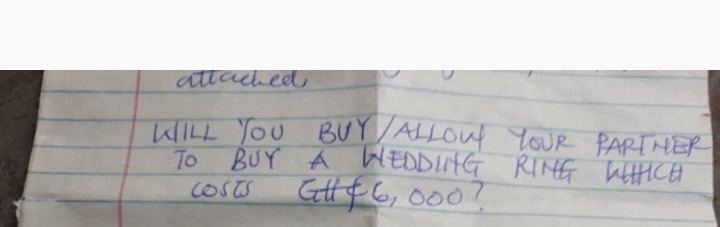 attached,
WILL YOU BUY/ALLOW YOUR PARTNER
TO BUY A WEDDING RING WHICH
COSTS GH₵6,000?